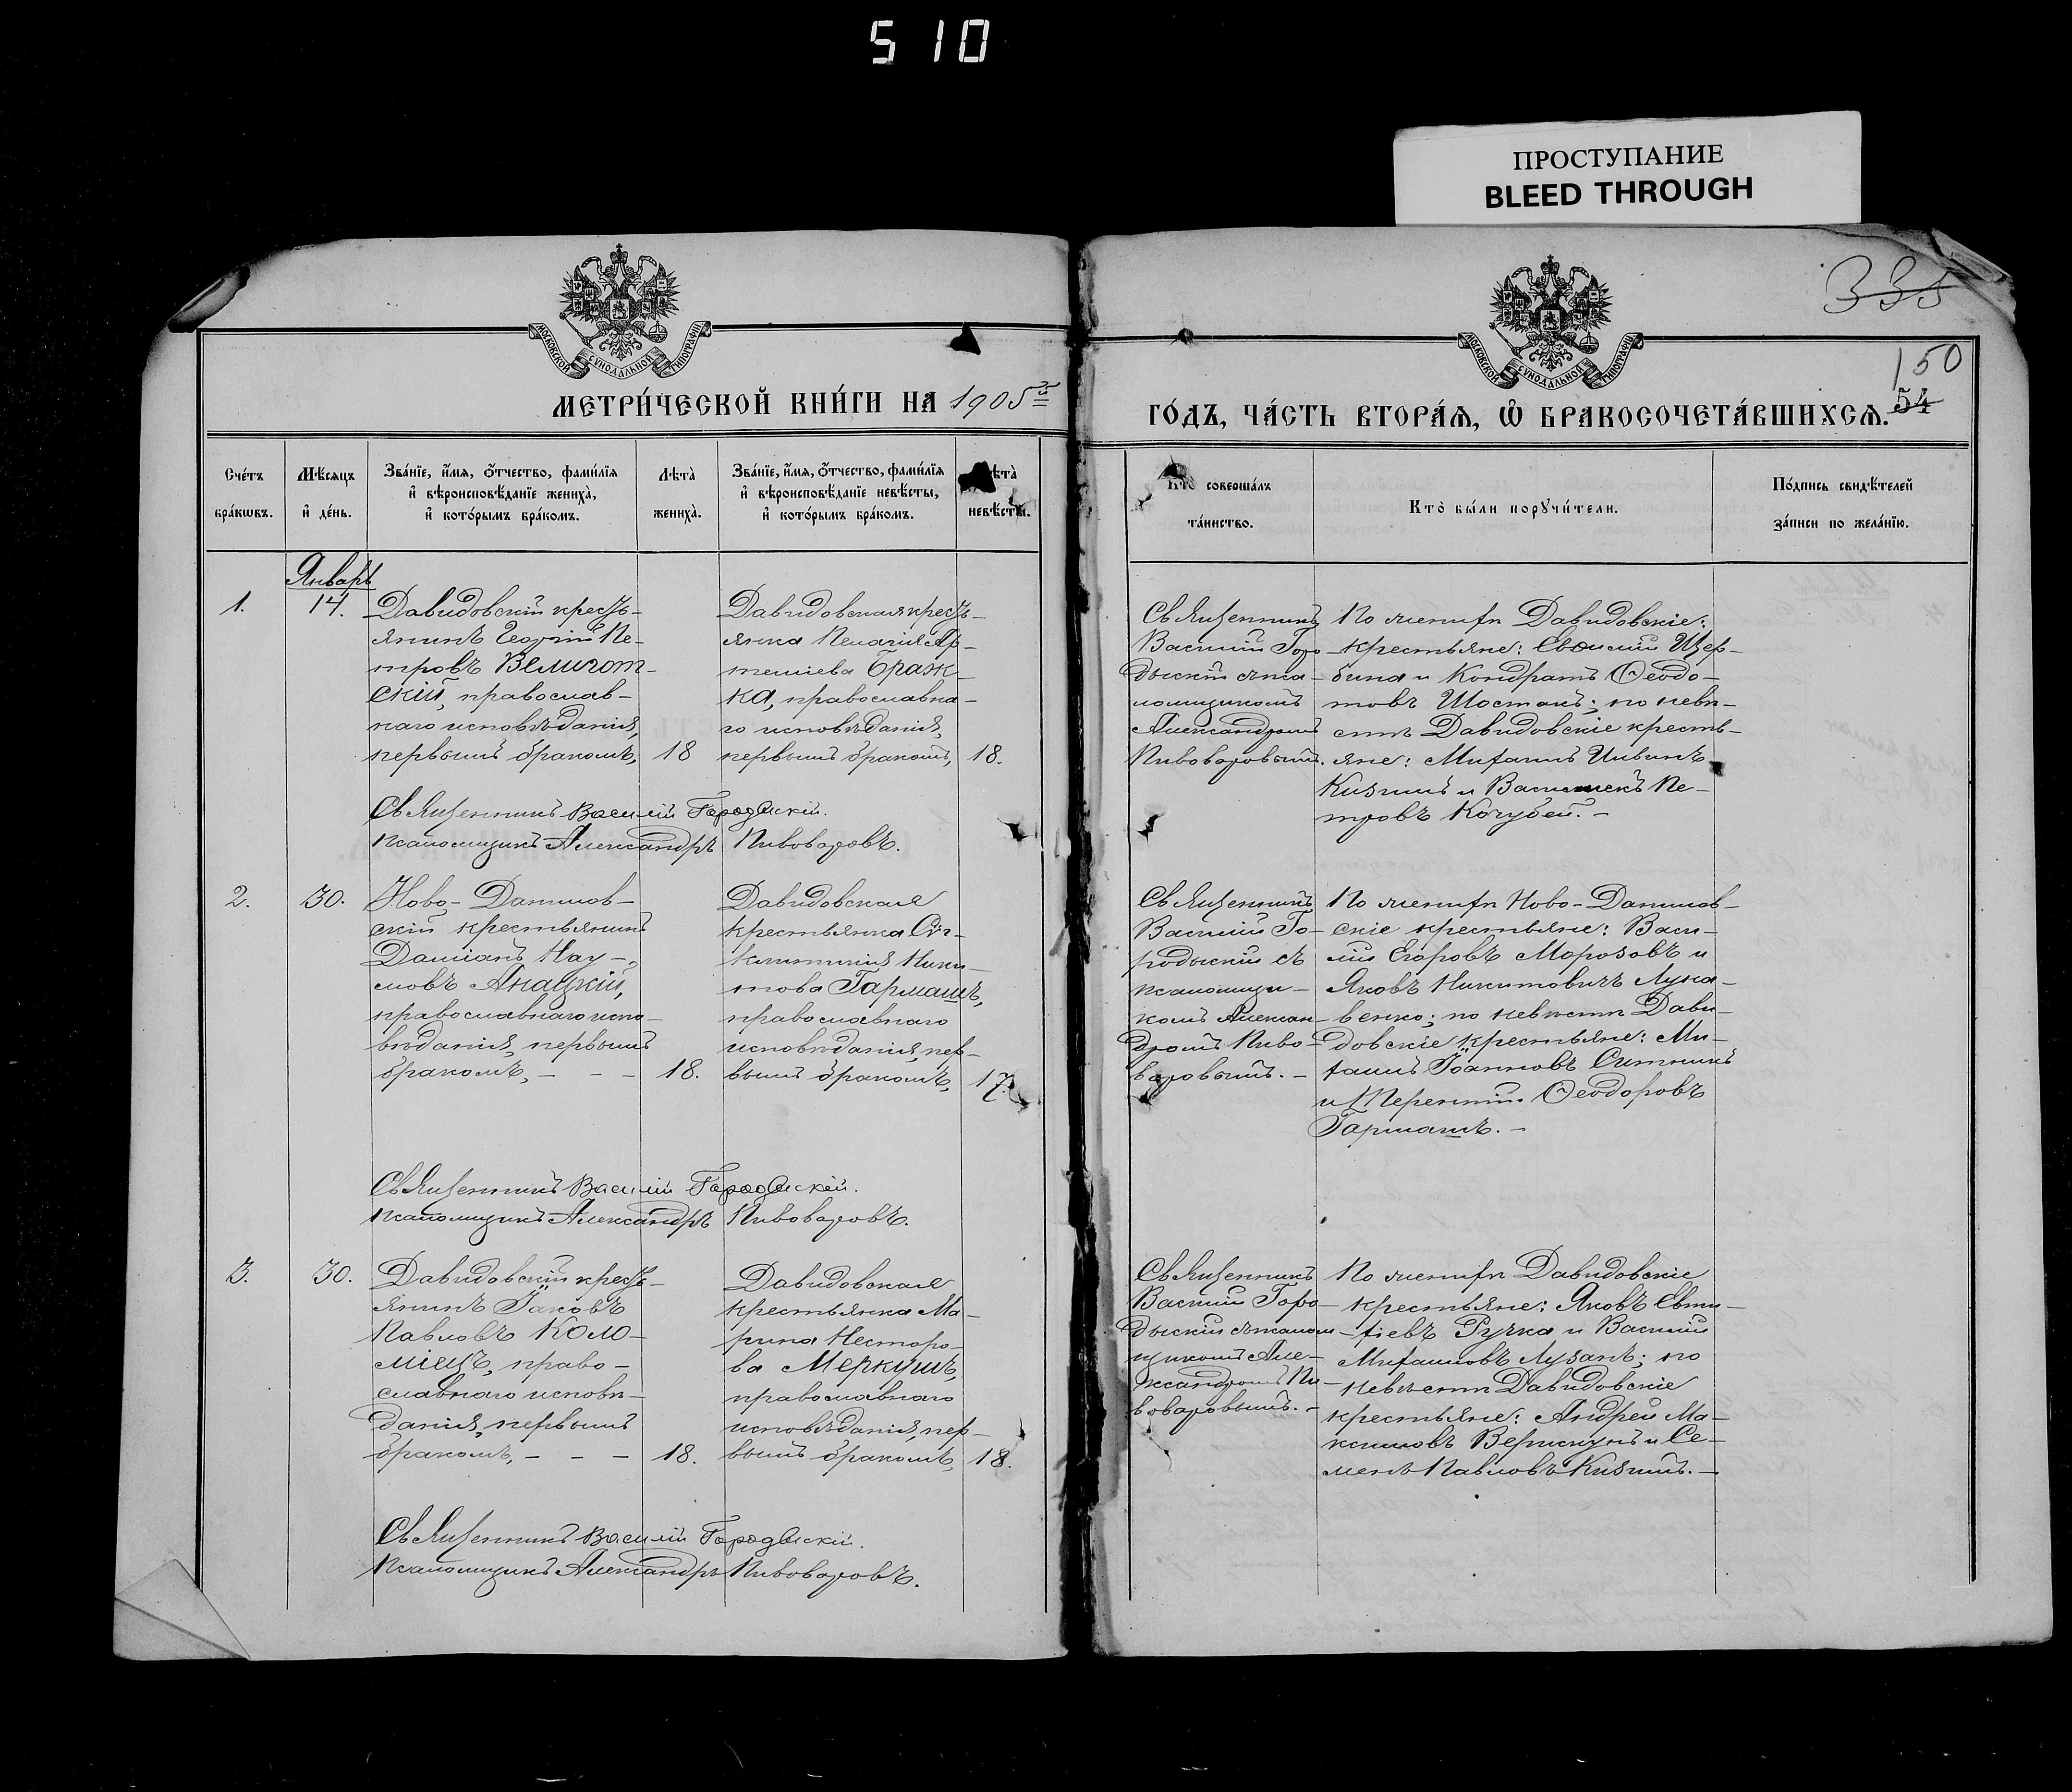 510
ПРОСТУПАНИЕ
BLEED THROUGH
335
МОСКОВСКОЙ СУНОДАЛЬНОЙ ТИПОГРАФІИ
МОСКОВСКОЙ СУНОДАЛЬНОЙ ТИПОГРАФІИ
150
54
МЕТРИ́ЧЕСКОЙ КНИ́ГИ НА 1905й
ГО́ДЪ, ЧА́СТЬ ВТОРА́Ѧ, Ѿ БРАКОСОЧЕТА́ВШИХСѦ.
Сче́тъ
бра́кѡвъ.
Мѣ́сяцъ
и҆ де́нь.
Зва́нїе, и҆́мя, ѻ҆́тчество, фами́лїя
и҆ вѣроисповѣ́данїе жениха̀,
и҆ кото́рымъ бра́комъ.
Лѣ́та̀
жениха̀.
Зва́нїе, и҆́мя, ѻ҆́тчество, фами́лїя
и҆ вѣроисповѣ́данїе невѣ́сты,
и҆ кото́рымъ бра́комъ.
Лѣ́та̀
невѣ́сты.
Кто̀ соверша́лъ
та́инство.
Кто̀ бы́ли порꙋчи́тели.
По́дпись свидѣ́телей
за́писи по жела́нїю.
Январь
1.
14.
Давидовскій кресть-
янинъ Георгій Пе-
тровъ Величот-
скій, православ-
наго исповѣданія,
первымъ бракомъ,
18
Давидовская кресть-
янка Пелагія Ар-
темiева Браж-
ка, православна-
го исповѣданія,
первымъ бракомъ,
18.
Священникъ
Василій Горо-
дыскій съ пса-
ломщикомъ
Александромъ
Пивоваровымъ.
По женихѣ Давидовскіе:
крестьяне: Евфимій Щер-
бина и Кондратъ Ѳеодо-
товъ Шостакъ; по невѣ-
стѣ Давидовскіе кресть-
яне: Михаилъ
Кизимъ и Ва Пе-
тровъ Кочубей.-
Священникъ Василій Городыскій.
Псаломщикъ Александръ Пивоваровъ.
2.
30.
Ново-Данилов-
скій крестьянинъ
Даміанъ Нау-
мовъ Анацкій,
православнаго испо-
вѣданія, первымъ
бракомъ, - - -
18.
Давидовская
крестьянка Сѵн-
клитикія Ники-
това Гармашъ,
православнаго
исповѣданія, пер-
вымъ бракомъ,
17.
Священникъ
Василій Го-
родыскій съ
псаломщи-
комъ Алексан-
дромъ Пиво-
варовымъ.-
По женихѣ Ново-Данилов-
скіе крестьяне: Васи-
лій Егоровъ Морозовъ и
Яковъ Никитовичъ Лука-
венко; по невѣстѣ Дави-
довскіе крестьяне: Ми-
хаилъ Іоанновъ Ситникъ
и Терентій Ѳеодоровъ
Гармашъ.-
Священникъ Василій Городыскій.
Псаломщикъ Александръ Пивоваровъ.
3.
30.
Давидовскій кресть-
янинъ Іаковъ
Павловъ Коло-
міецъ, право-
славнаго исповѣ-
данія, первымъ
бракомъ, - - -
18.
Давидовская
крестьянка Ма-
рина Нестеро-
ва Меркушъ,
православнаго
исповѣданія, пер-
вымъ бракомъ,
18.
Священникъ
Василій Горо-
дыскій съ псалом-
щикомъ Але-
ксандромъ Пи-
воваровымъ.-
По женихѣ Давидовскіе
крестьяне: Яковъ Евти-
хіевъ Гучка и Василій
Михаиловъ Лузанъ; по
невѣстѣ Давидовскіе
крестьяне: Андрей Ма-
ксимовъ Верискунъ и Се-
менъ Павловъ Кизимъ.-
Священникъ Василій Городыскій.
Псаломщикъ Александръ Пивоваровъ.